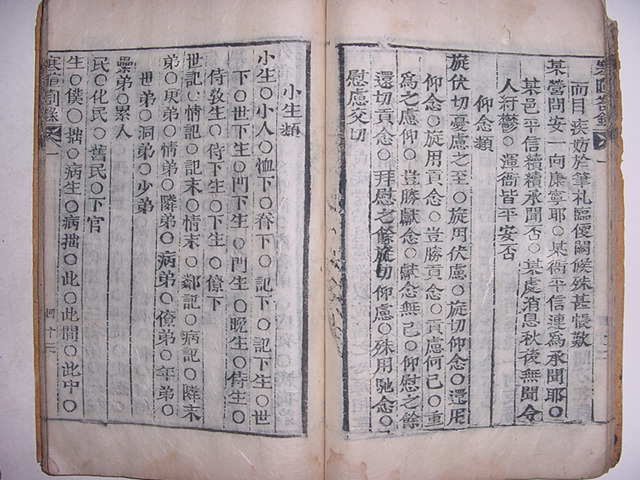 寒暄劄錄 卷一
而目疾妨於筆札臨便闕候殊甚悵歎
某營問安一向康寧耶○某衙平信連爲承聞耶○
某邑平信續續承聞否○某處消息秋後無聞令
人紆鬱○渾衙皆平安否
仰念類
旋伏切憂慮之至○旋用伏慮○旋切仰念○還用
仰念○旋用貢念○豈勝貢念○貢慮何已○重
爲之慮仰○豈勝獻念○獻念無已○仰慰之餘
還切貢念○拜慰之餘旋切仰慮○殊用馳念○
慰慮交切
小生類
小生○小人○恤下○眷下○記下○記下生○世
下○世下生○門下生○門生○晚生○侍生○
侍敎生○侍下生○下生○僚下
世記○情記○記末○情末○鄰記○病記○隣末
弟○庚弟○情弟○隣弟○病弟○僚弟○年弟○
世弟○洞弟○少弟
纍弟○累人
民○化民○舊民○下官
生○僕○拙○病生○病拙○此○此間○此中○
寒暄劄錄 卷一